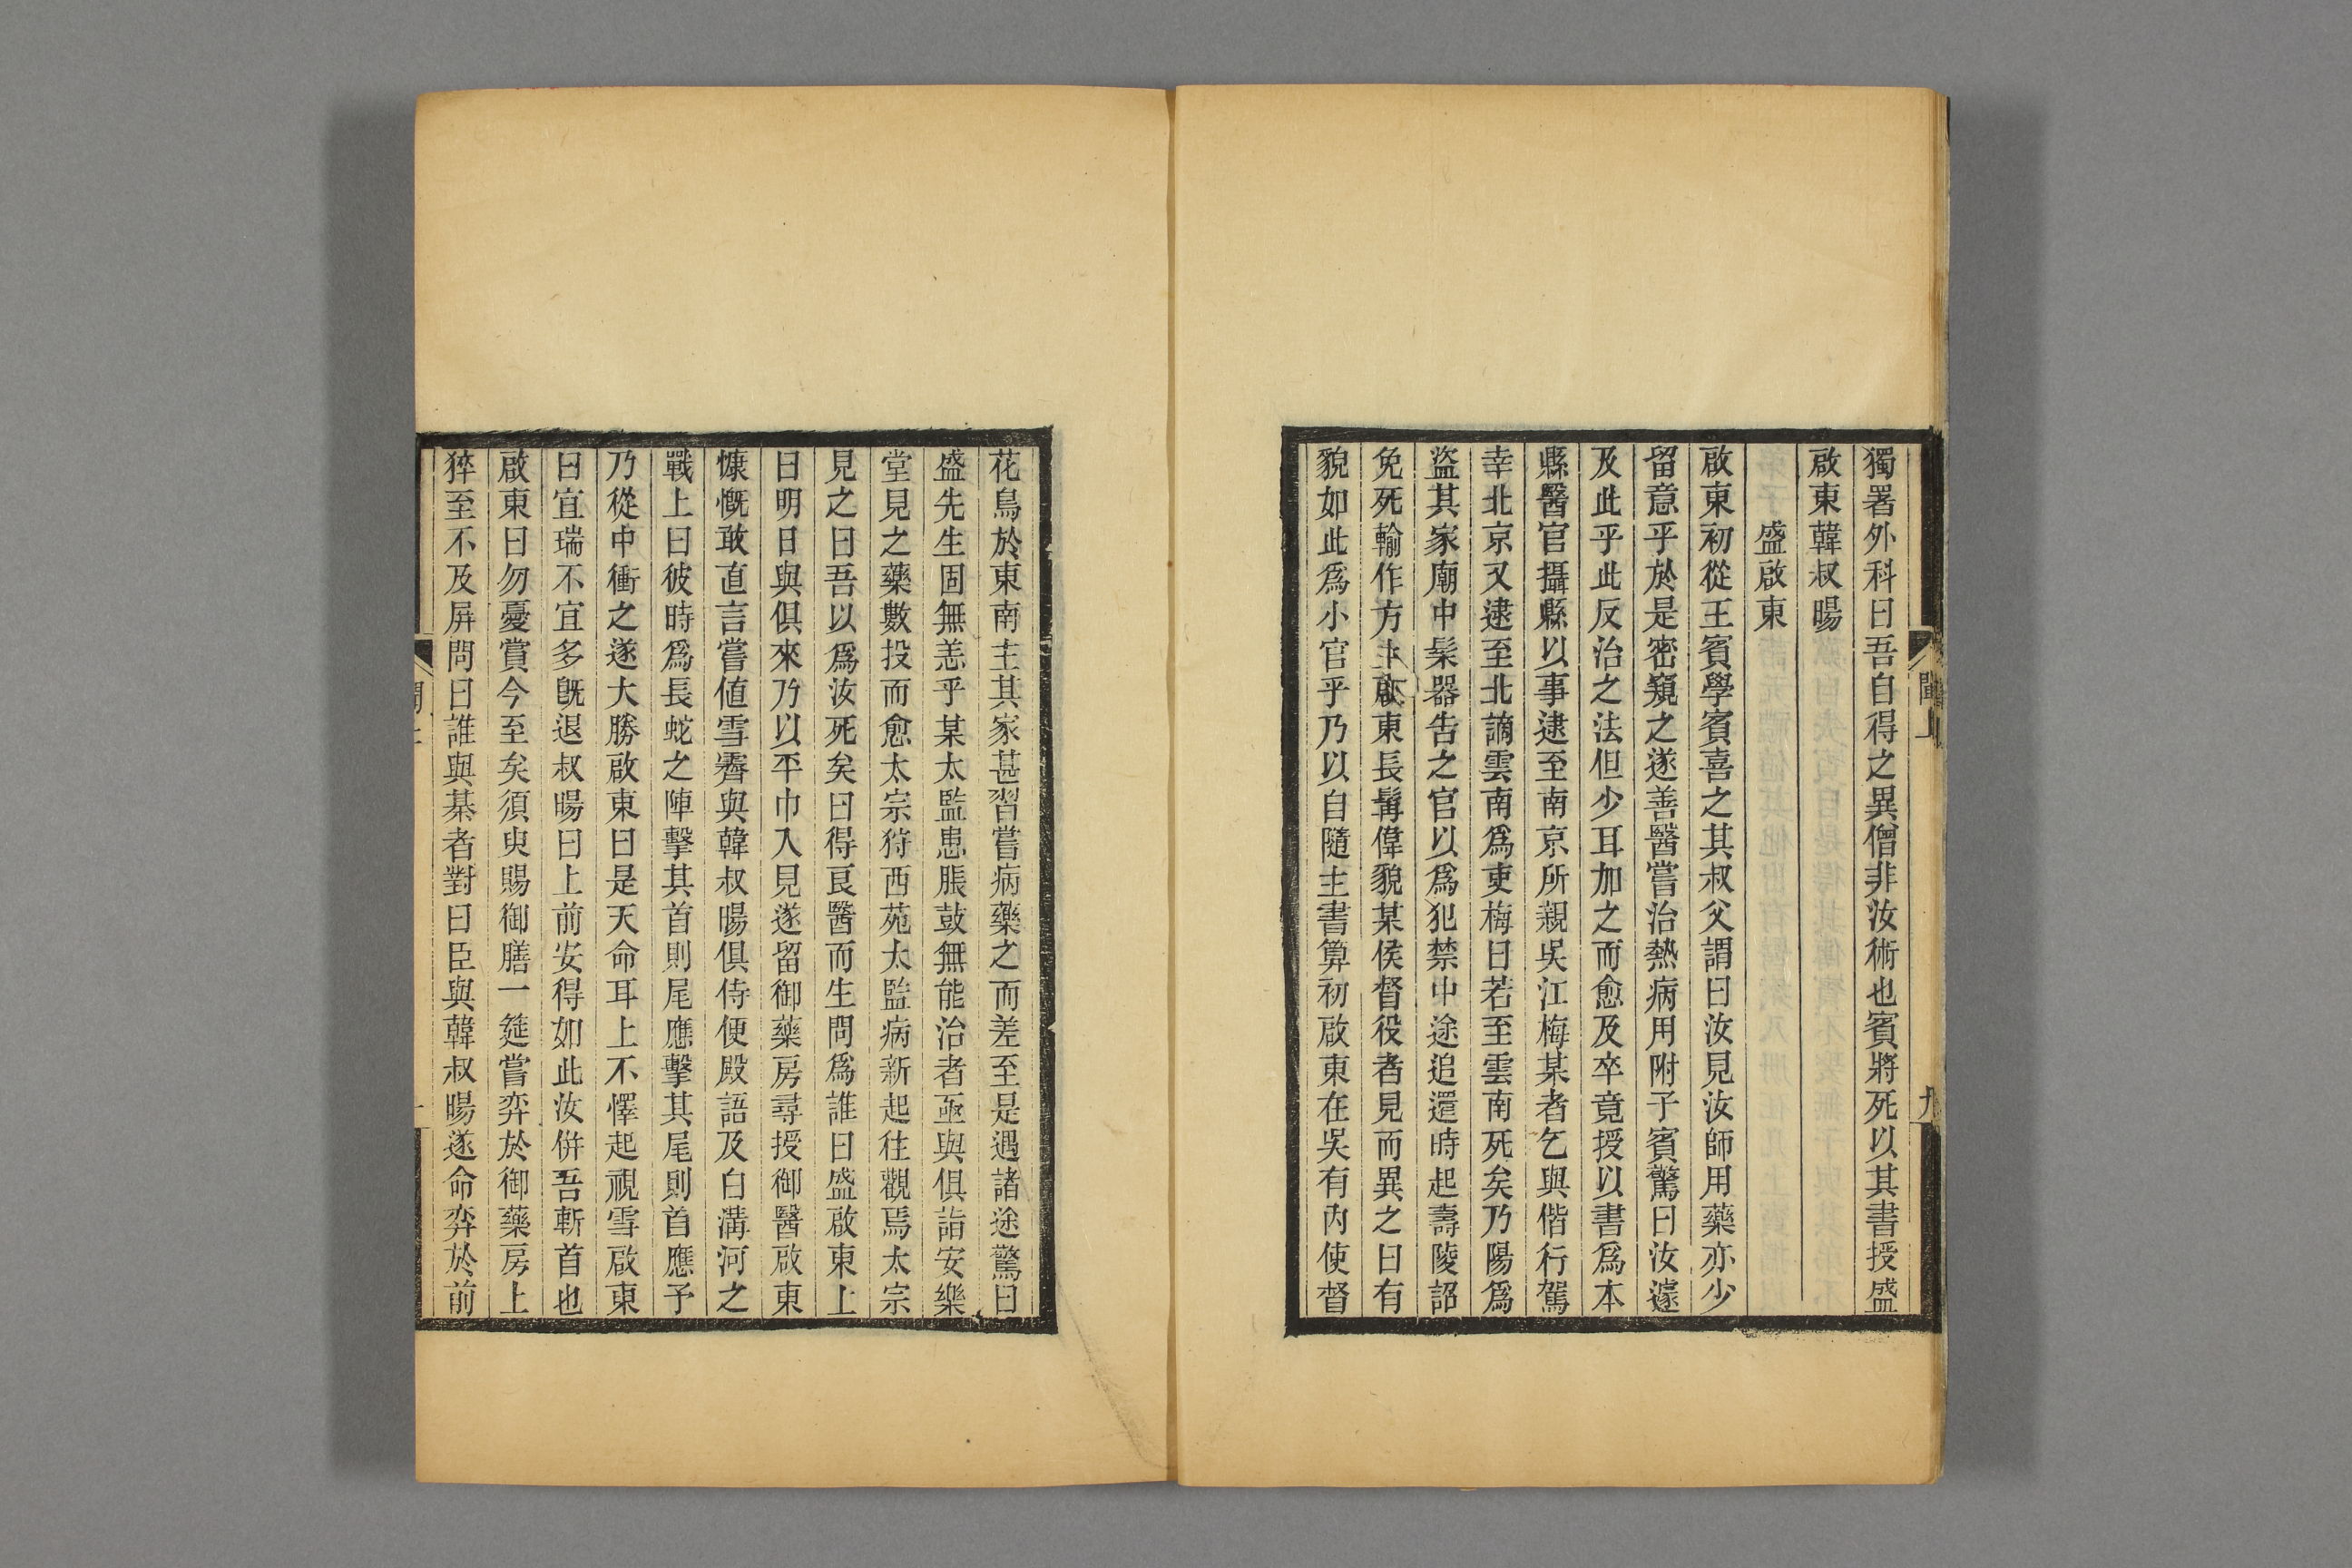 獨署外科曰吾自得之異僧非汝術也賓將死以其書授盛
啟東韓叔暘
盛啟東
啟東初從王賓學賓喜之其叔父謂曰汝見汝師用藥亦少
留意乎於是密窺之遂善醫嘗治熱病用附子賓驚曰汝遽
及此乎此反治之法但少耳加之而愈及卒竟授以書爲本
縣醫官攝縣以事逮至南京所親吳江梅某者乞與偕行駕
幸北京又逮至北謫雲南爲吏梅曰若至雲南死矣乃陽爲
盜其家廟中髹器告之官以爲犯禁中途追還時起壽陵詔
免死輸作方主啟東長髯偉貌某侯督役者見而異之曰有
貌如此爲小官乎乃以自隨主書算初啟東在吳有內使督
花鳥於東南主其家甚習嘗病藥之而差至是遇諸途驚曰
盛先生固無恙乎某太監患脹鼓無能治者亟與俱詣安樂
堂見之藥數投而愈太宗狩西苑太監病新起往觀焉太宗
見之曰吾以爲汝死矣曰得良醫而生問爲誰曰盛啟東上
曰明日與俱來乃以平巾入見遂留御藥房尋授御醫啟東
慷慨敢直言嘗値雪霽與韓叔暘俱侍便殿語及白溝河之
戰上曰彼時爲長蛇之陣擊其首則尾應擊其尾則首應予
乃從中衝之遂大勝啟東曰是天命耳上不懌起視雪啟東
曰宜瑞不宜多既退叔暘曰上前安得如此汝併吾斬首也
啟東曰勿憂賞今至矣須臾賜御膳一筵嘗弈於御藥房上
猝至不及屏問曰誰與棊者對曰臣與韓叔暘遂命弈於前